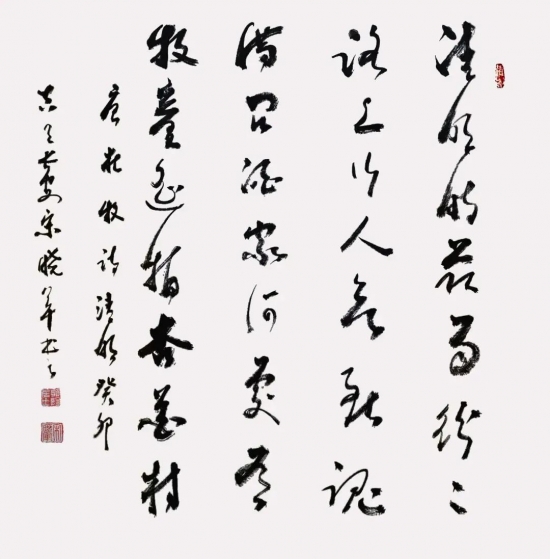 清明时节雨纷纷
路上行人欲断魂
借问酒家何处有
牧童遥指杏花村
唐杜牧诗清明癸卯
宋晓